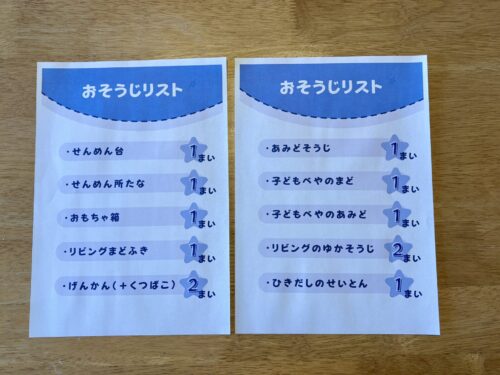 おそうじリスト
・せんめん台 1まい
・せんめん所たな 1まい
・おもちゃ箱 1まい
・リビングまどふき 1まい
・げんかん(+くつばこ) 2まい
おそうじリスト
・あみどそうじ 1まい
・子どもべやのまど 1まい
・子どもべやのあみど 1まい
・リビングのゆかそうじ 2まい
・ひきだしのせいとん 1まい